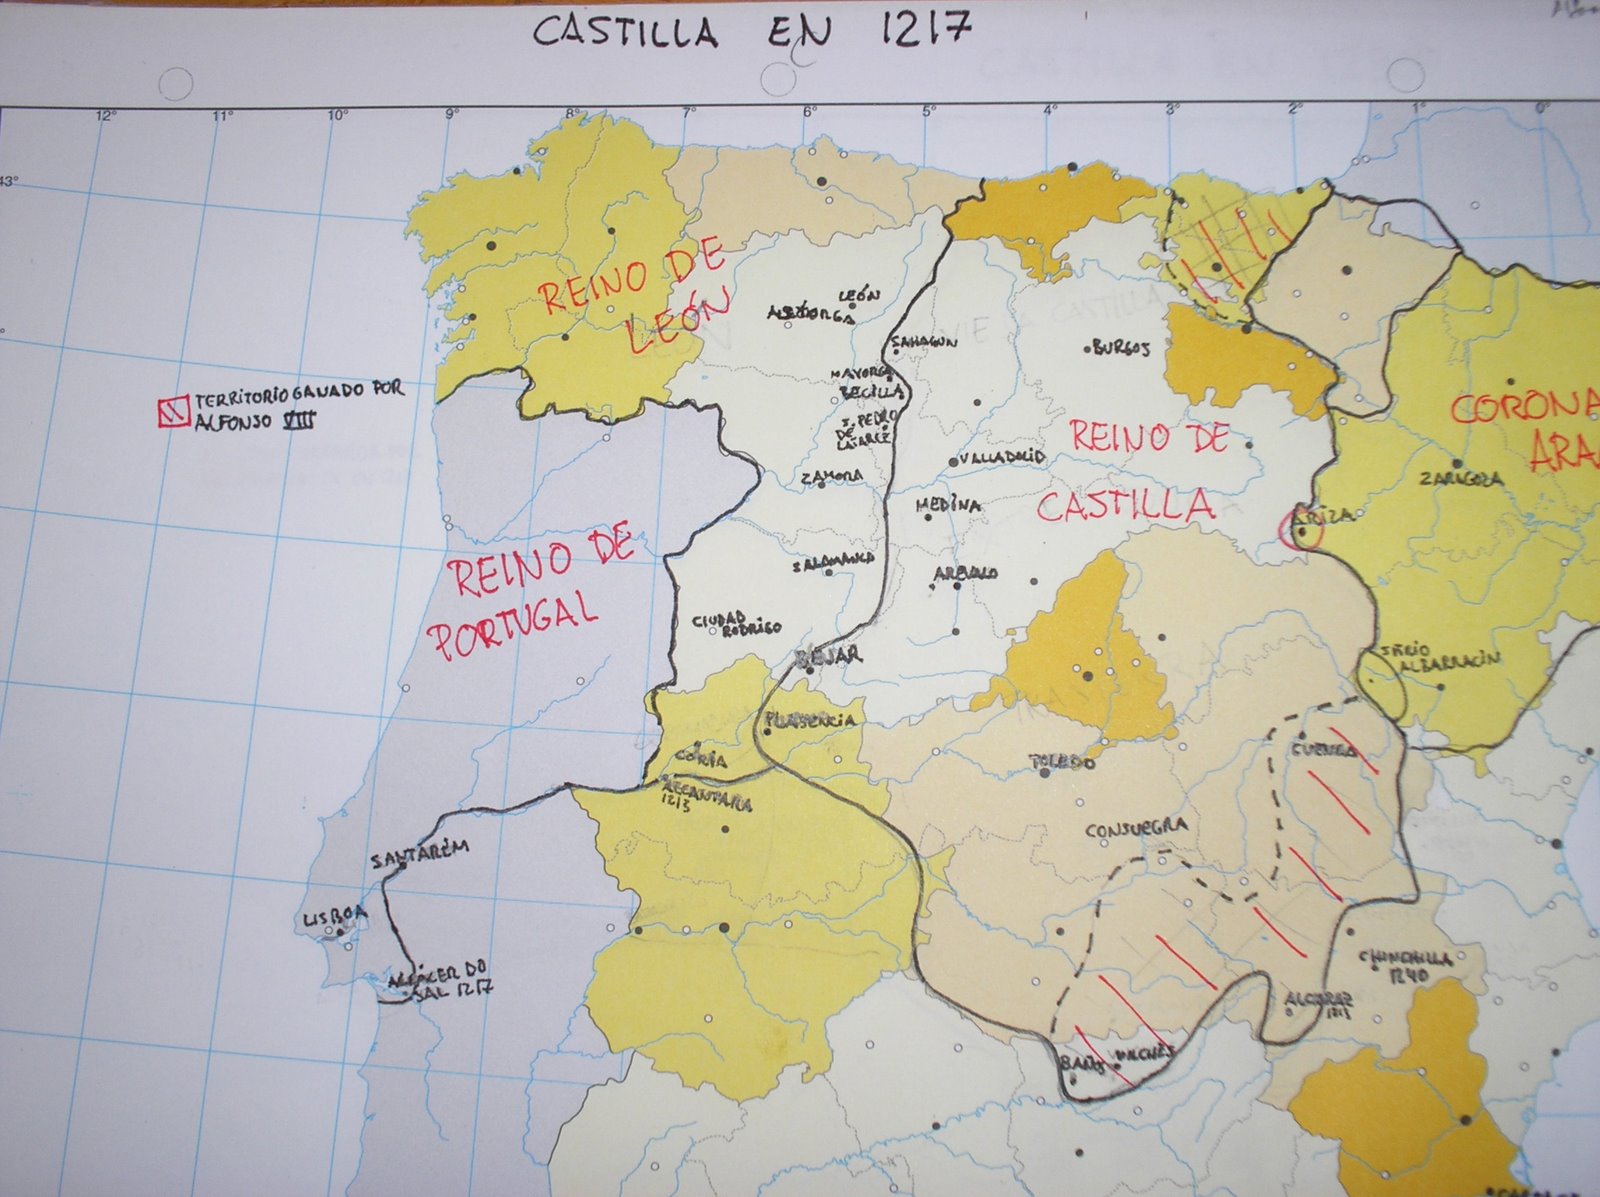 CASTILLA EN 1217
12° 11° 10° 9° 8° 7° 6° 5° 4° 3° 2° 1° 0°
43°
REINO DE
LEÓN
LEÓN
SAHAGUN
BURGOS
MAYORGA
BECILLA
S. PEDRO
DE
TERRITORIO GANADO POR
ALFONSO VIII
CORONA
ARA
REINO DE
CASTILLA
VALLADOLID
ZAMORA
ZARAGOZA
MEDINA
ARIZA
REINO DE
PORTUGAL
SALAMANCA
AREVALO
CIUDAD
RODRIGO
BEJAR
SEÑRIO
ALBARRACIN
PLASENCIA
CORIA
CUENCA
TOLEDO
ALCANTARA
1213
CONSUEGRA
SANTARÉM
LISBOA
ALCÁCER DO
SAL 1217
CHINCHILLA
1240
ALCARAZ
1213
BAÑOS
VILCHES